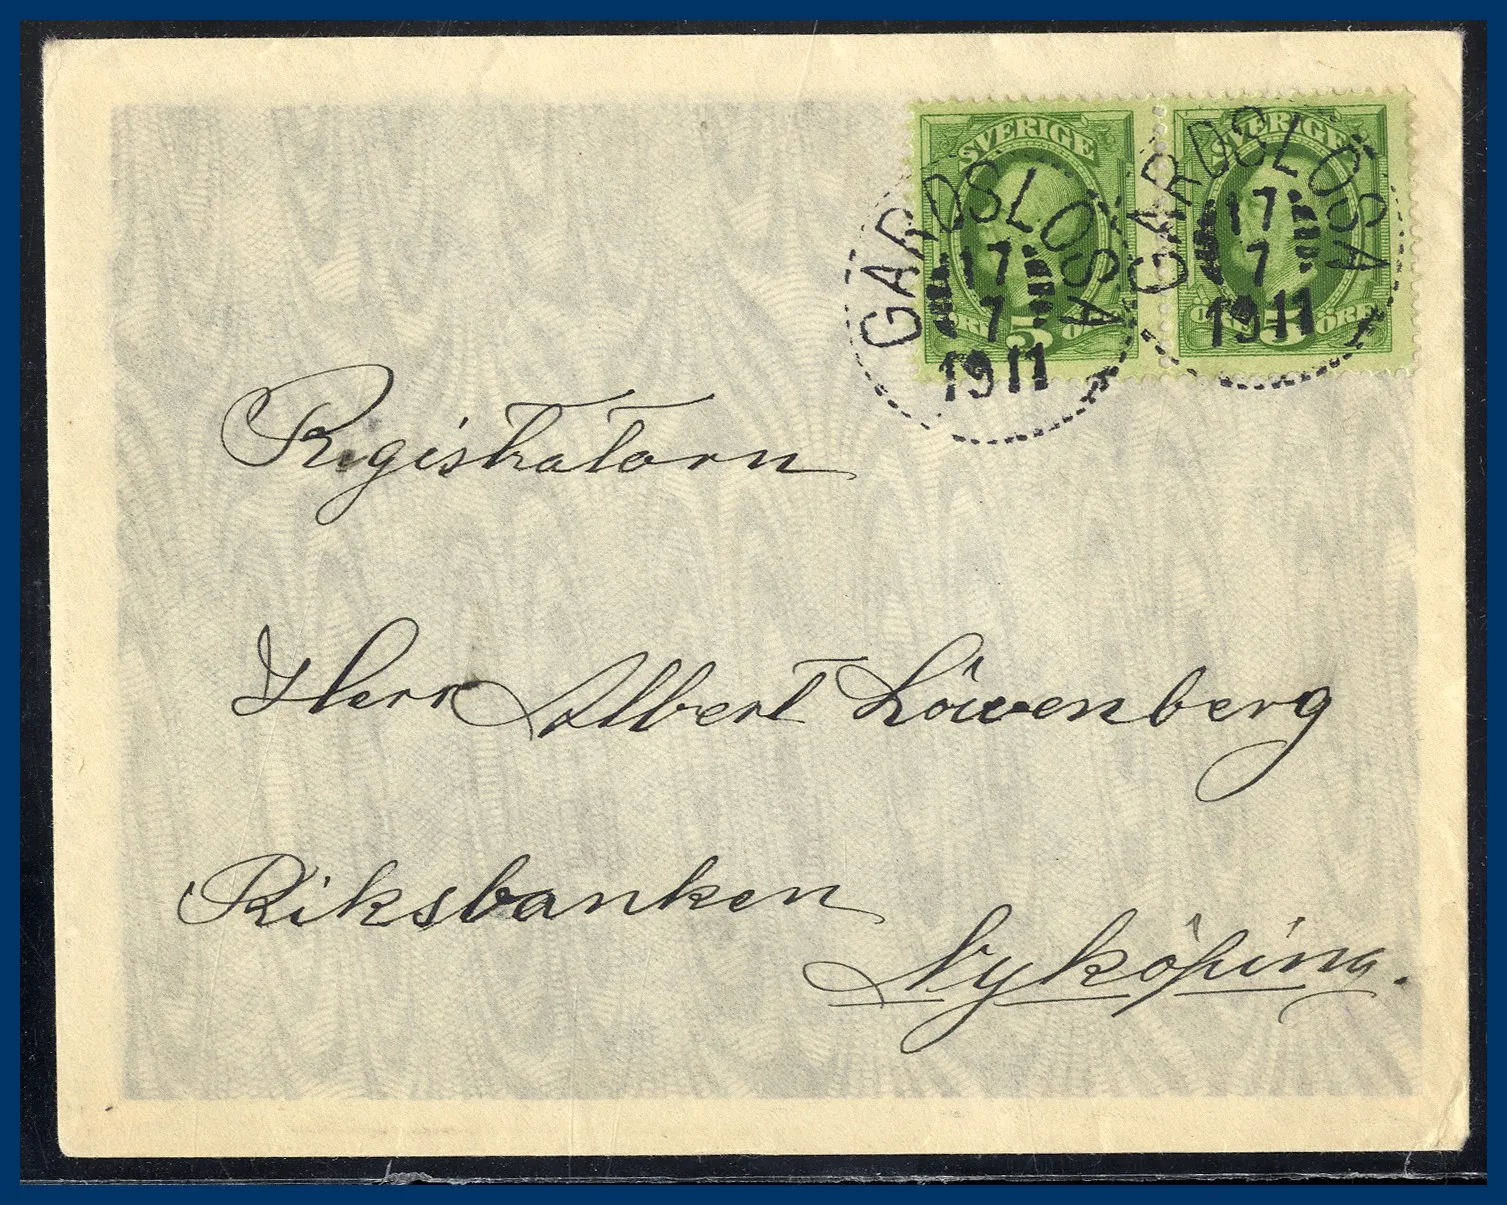 SVERIGE SVERIGE
GÄRDSLÖSA GÄRDSLÖSA
17 17
7 7
1911 1911
ÖRE 5 ÖRE ÖRE 5 ÖRE
Registratorn
Herr Albert Löwenberg
Riksbanken
Nyköping.